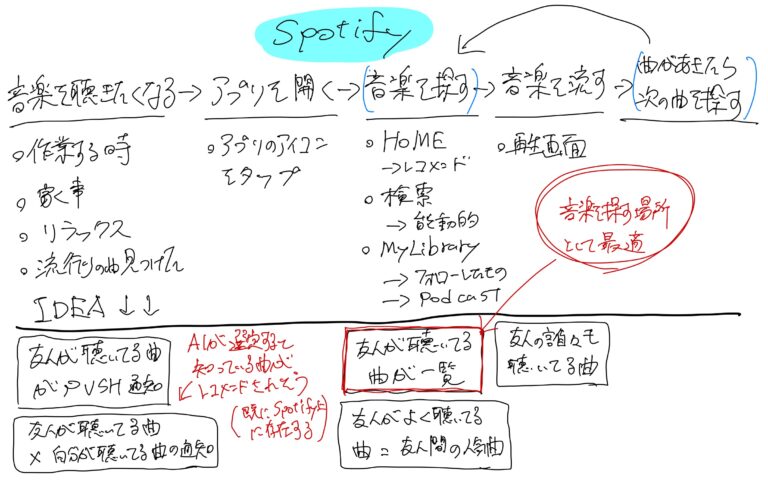 Spotify
音楽を聴きたくなる→アプリを開く→(音楽を探す)→音楽を流す→(曲があきたら
次の曲を探す)
○作業する時
○書く事
○リラックス
○流行りの曲見つけたい
○アプリのアイコン
をタップ
○HOME
→レコメンド
○検索
→能動的
○MyLibrary
→フォローしたもの
→Podcast
○再生画面
音楽を探す場所
として最適
IDEA ↓↓
友人が聴いてる曲
がPUSH通知
友人が聴いてる曲
×自分が聴いてる曲の通知
AIが選定する
知っている曲が
レコメンドされそう
(既にSpotify上
に存在する)
友人が聴いてる
曲が一覧
友人がよく聴いてる
曲=友人間の人気曲
友人の誰々も
聴いてる曲